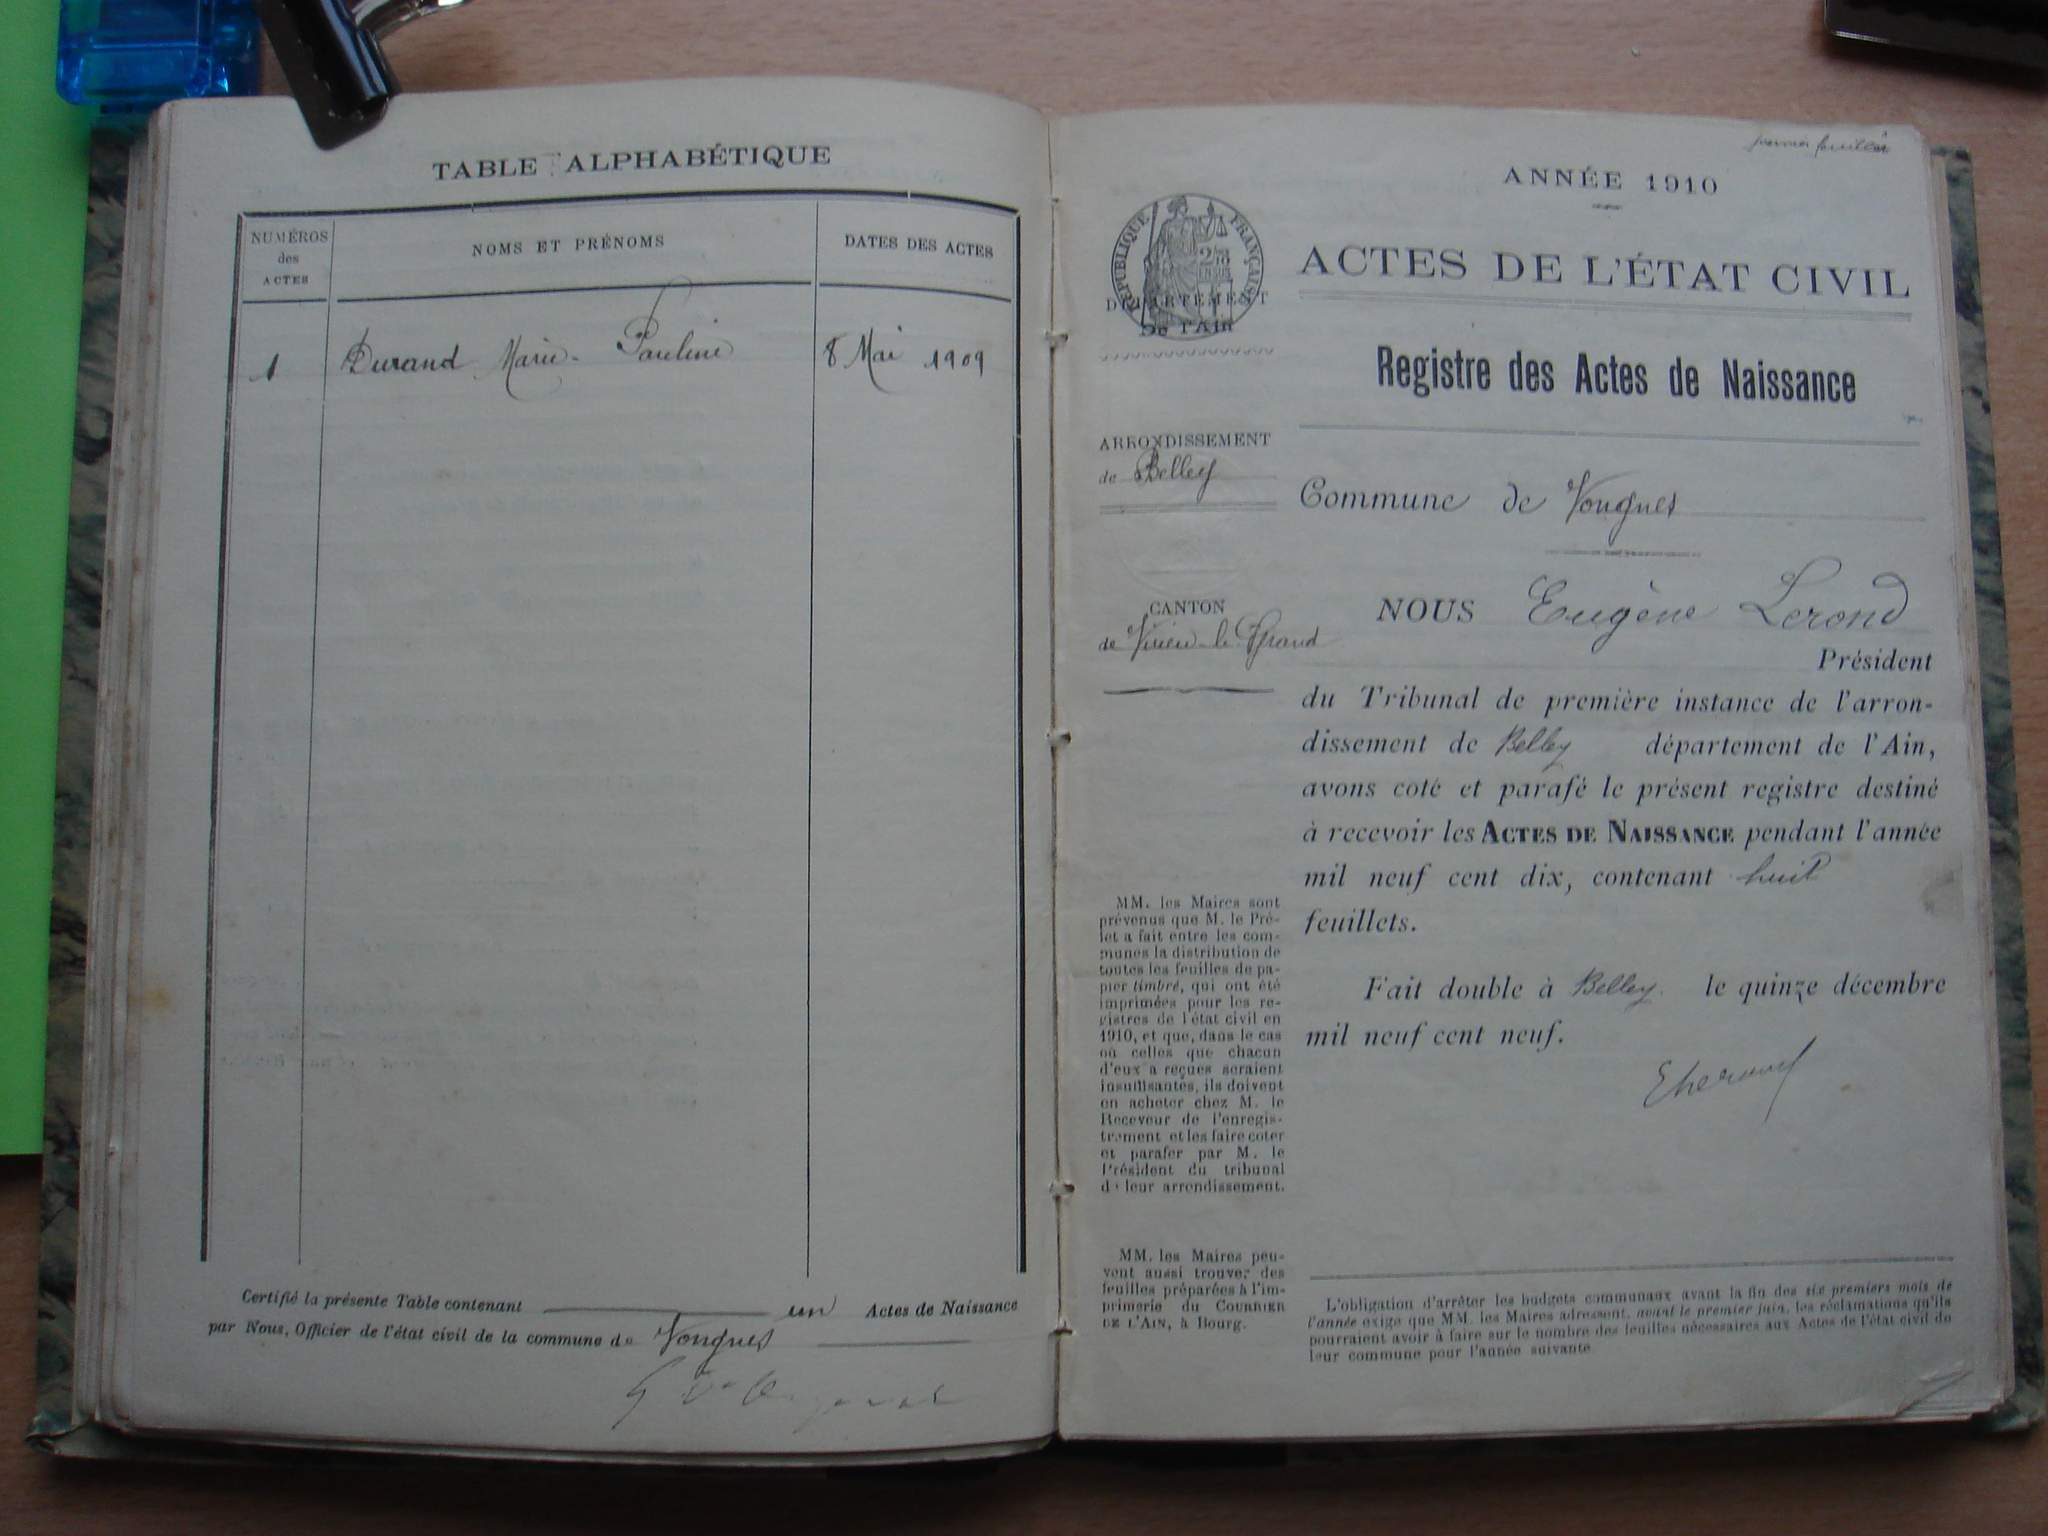 TABLE ALPHABÉTIQUE
NUMÉROS
des
ACTES
NOMS ET PRÉNOMS
DATES DES ACTES
1 Durand Marie-Pauline 8 Mai 1909
Certifié la présente Table contenant un Actes de Naissance
par Nous, Officier de l'état civil de la commune de Vongnes
premier feuillet
ANNÉE 1910
RÉPUBLIQUE FRANÇAISE
DÉPARTEMENT
De l'Ain
ACTES DE L'ÉTAT CIVIL
Registre des Actes de Naissance
ARRONDISSEMENT
de Belley
Commune de Vongnes
CANTON
de Virieu-le-Grand
NOUS Eugène Lerond
Président
du Tribunal de première instance de l'arron-
dissement de Belley département de l'Ain,
avons coté et parafé le présent registre destiné
à recevoir les ACTES DE NAISSANCE pendant l'année
mil neuf cent dix, contenant huit
feuillets.
Fait double à Belley. le quinze décembre
mil neuf cent neuf.
MM. les Maires sont
prévenus que M. le Pré-
fet a fait entre les com-
munes la distribution de
toutes les feuilles de pa-
pier timbré, qui ont été
imprimées pour les re-
gistres de l'état civil en
1910, et que, dans le cas
où celles que chacun
d'eux a reçues seraient
insuffisantes, ils doivent
en acheter chez M. le
Receveur de l'enregis-
trement et les faire coter
et parafer par M. le
Président du tribunal
de leur arrondissement.
MM. les Maires peu-
vent aussi trouver des
feuilles préparées à l'im-
primerie du COURRIER
DE L'AIN, à Bourg.
L'obligation d'arrêter les budgets communaux avant la fin des six premiers mois de
l'année exige que MM. les Maires adressent, avant le premier juin, les réclamations qu'ils
pourraient avoir à faire sur le nombre des feuilles nécessaires aux Actes de l'état civil de
leur commune pour l'année suivante